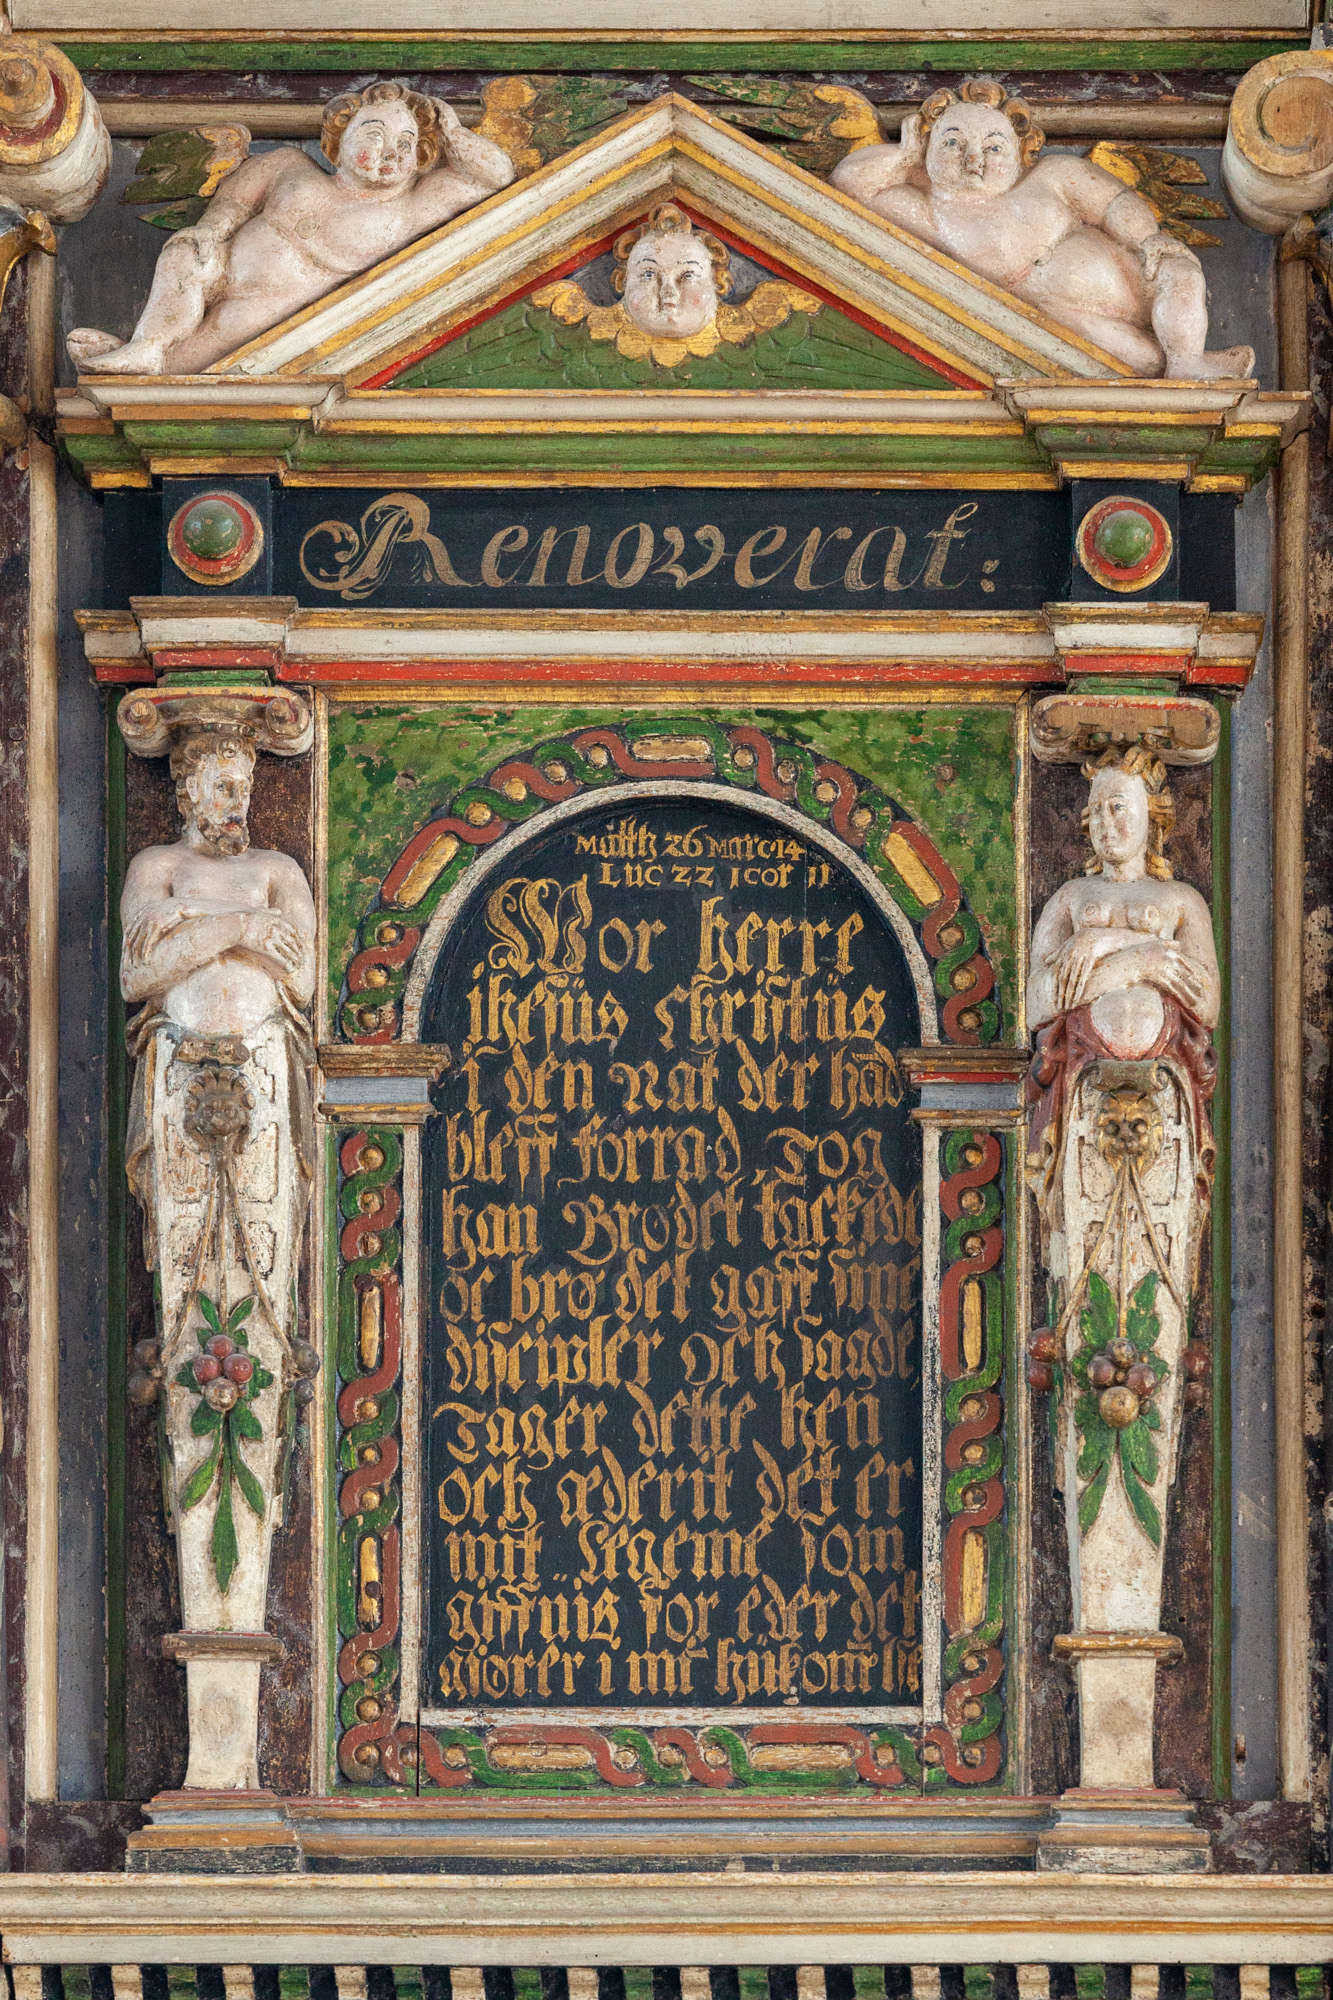 Renoverat:
Matth 26 Marc·14
Luc 22 1 cor 11
Wor herre
ihesüs christüs
i den Nat der hād
bleff forrad, Tog
han Brødet tackede
oc brø det gaff sine
discipler och sagde
Tager dette hen
och æderit det er
mit Legeme som
giffüis for eder det
giorer i mī